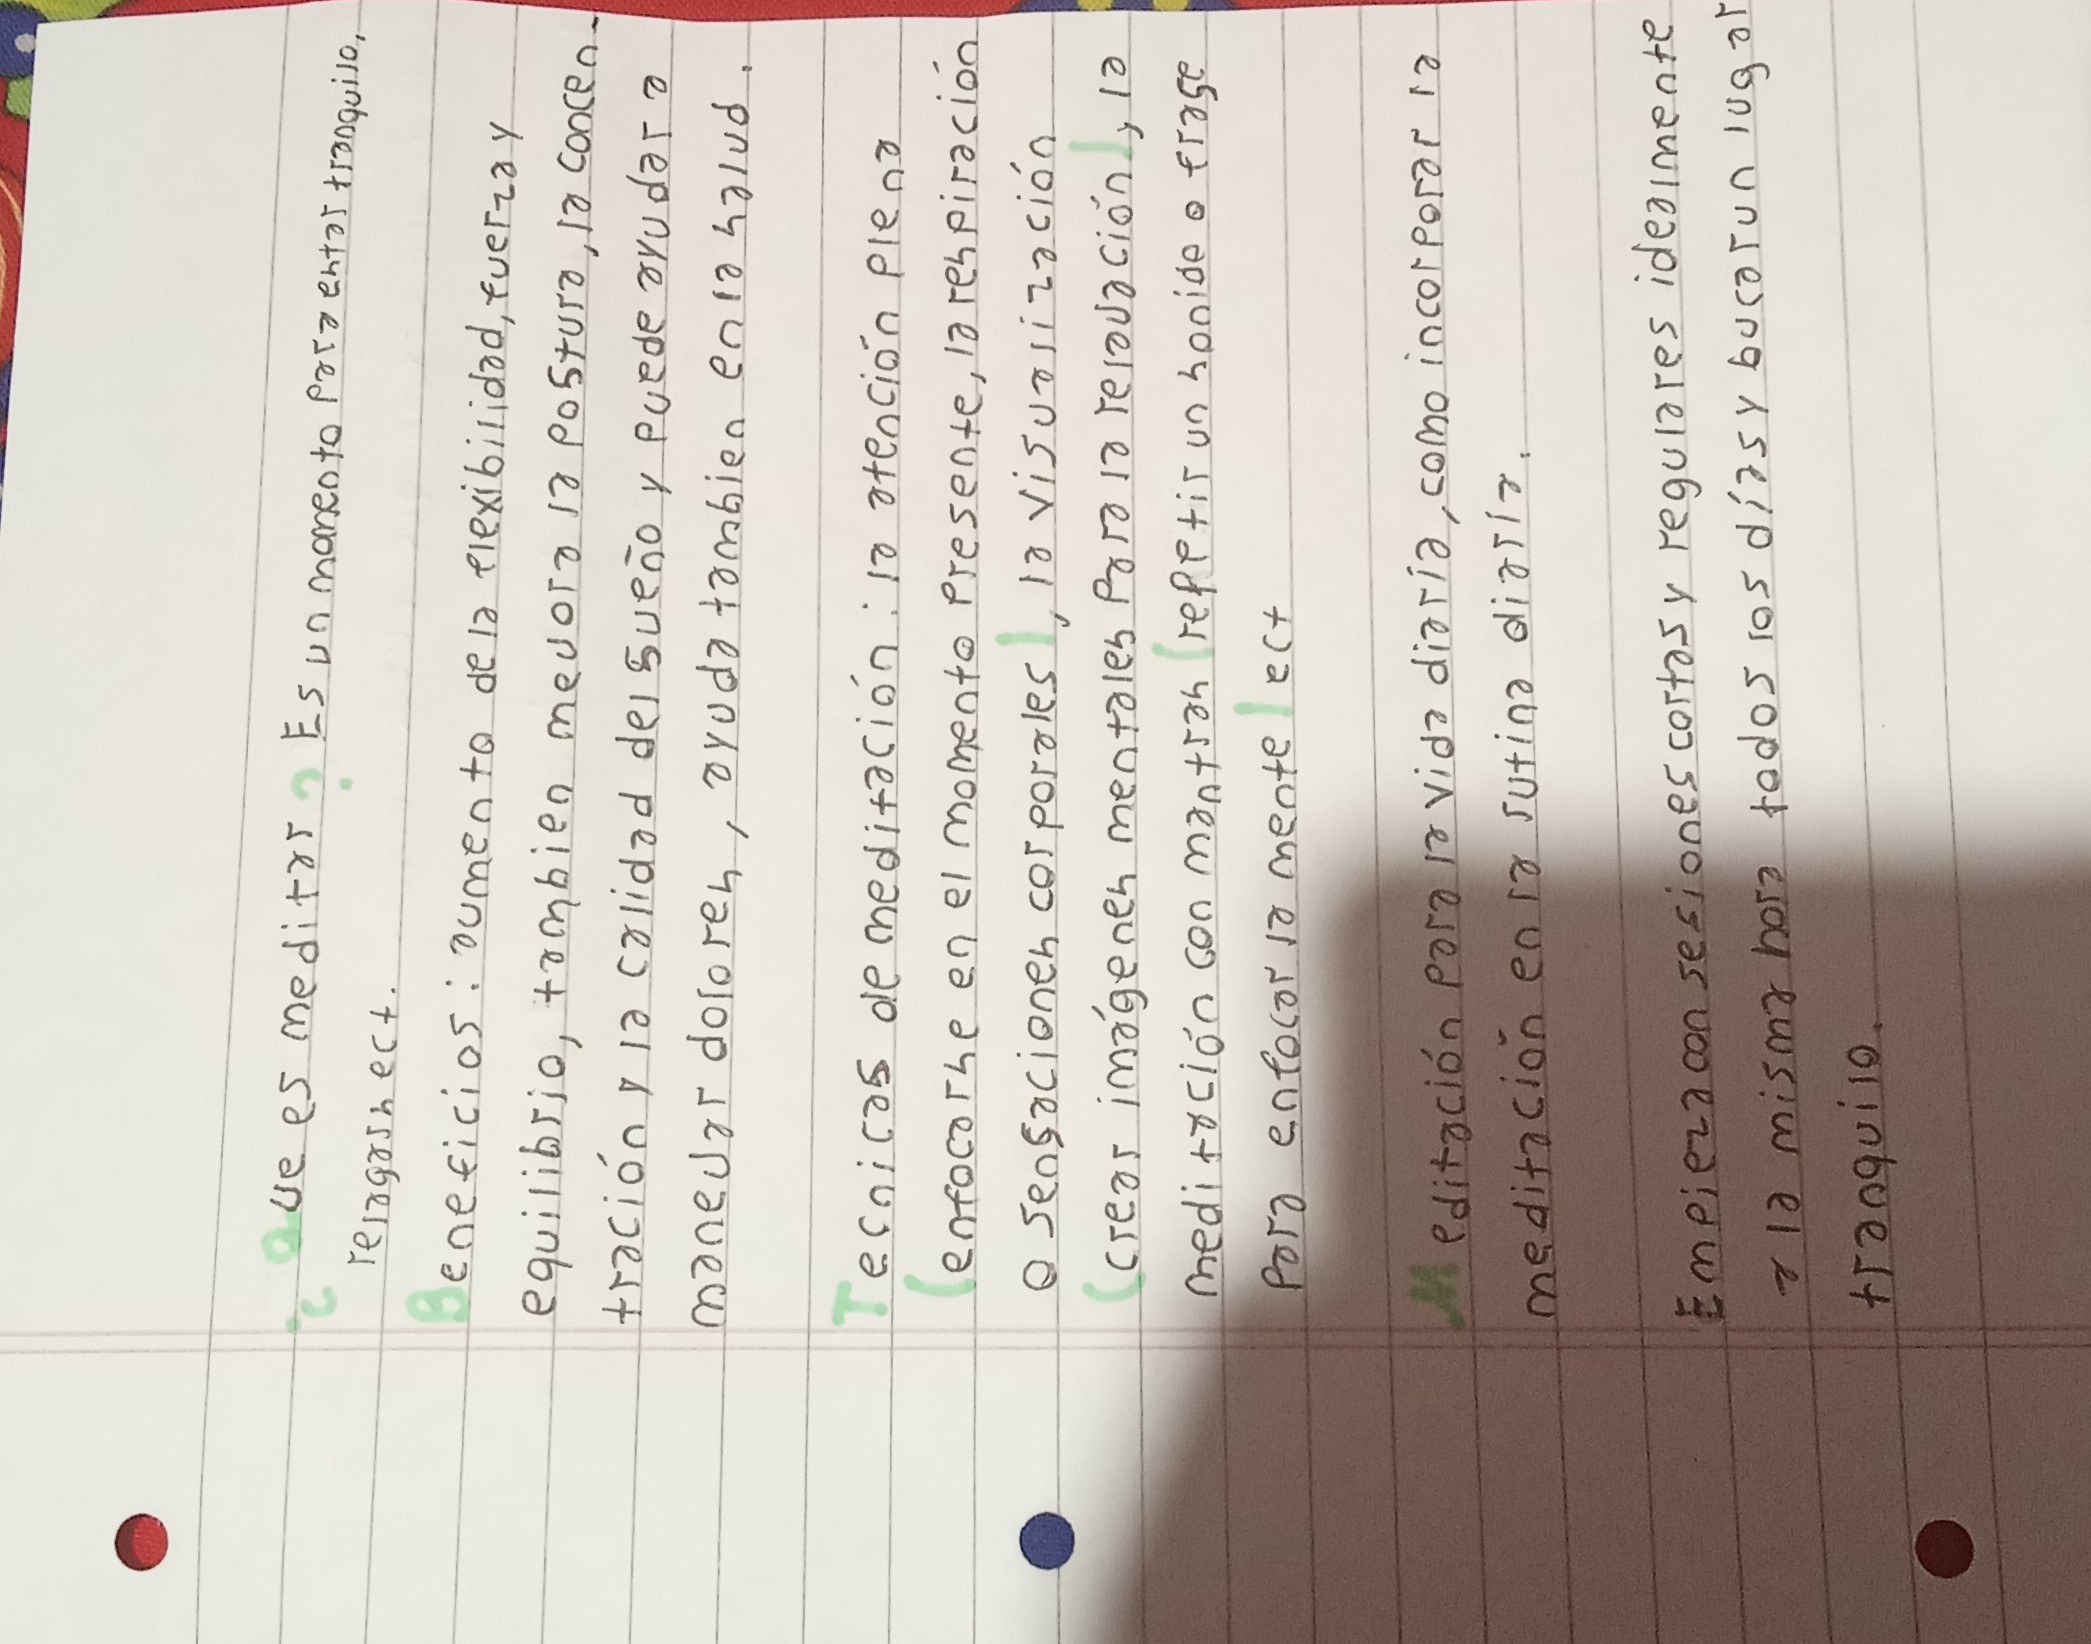 ¿Que es meditar? Es un momento para estar tranquilo,
relagarsh ect.
Beneficios: aumento de la flexibilidad, fuerza y
equilibrio, tambien meuora la postura, la concen-
tración y la calidad del sueño y puede ayudar a
maneuar dolores, ayuda tambien en la salud.
Tecnicas de meditación: la atención plena
(enfocarse en el momento presente, la respiración
o sensaciones corporales), la visualización
(crear imágenes mentales para la relauación), la
meditación con mantras (reppetir un sonido o frase
para enfocar la mente) ect
Meditación para la vida diaria, como incorporar la
meditación en la rutina diaria.
Empieza con sesiones cortas y regulares idealmente
a la misma hora todos los días y bucar un lugar
tranquilo.